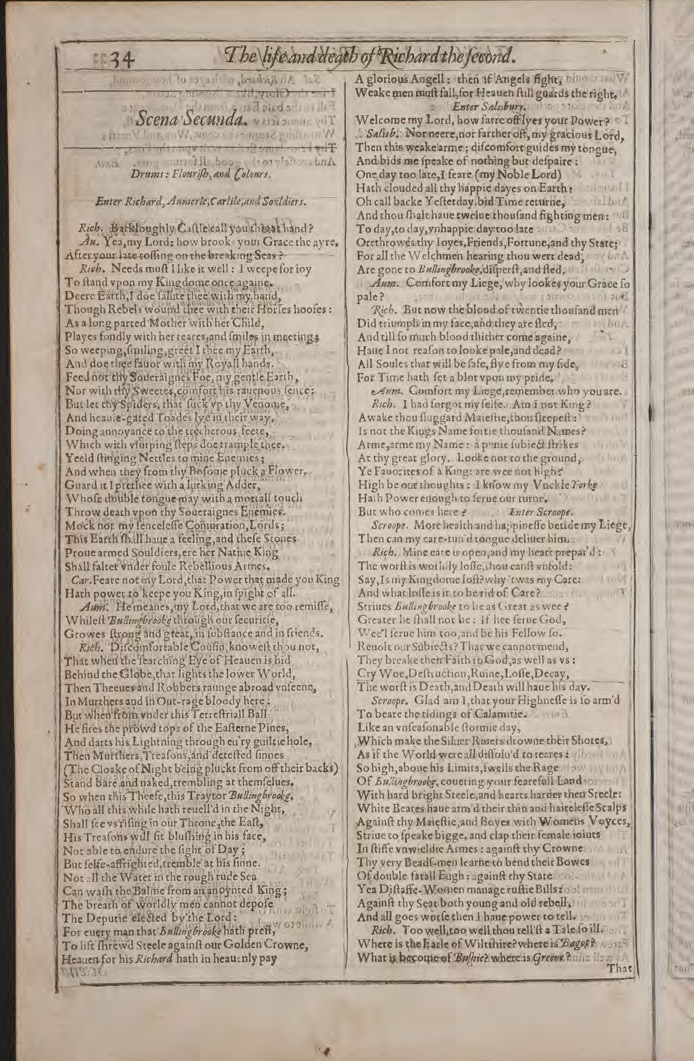 34
The life and death of Richard the second.
Scena Secunda.
Drums: Flourish, and Colours.
Enter Richard, Aumerle, Carlile, and Souldiers.
Rich. Barkloughly Castle call you this at hand?
Au. Yea, my Lord: how brooks your Grace the ayre,
After your late tossing on the breaking Seas?
Rich. Needs must I like it well: I weepe for ioy
To stand vpon my Kingdome once againe.
Deere Earth, I doe salute thee with my hand,
Though Rebels wound thee with their Horses hoofes:
As a long parted Mother with her Child,
Playes fondly with her teares, and smiles in meeting;
So weeping, smiling, greet I thee my Earth,
And doe thee fauor with my Royall hands.
Feed not thy Soueraignes Foe, my gentle Earth,
Nor with thy Sweetes, comfort his rauenous sence:
But let thy Spiders, that suck vp thy Venome,
And heauie-gated Toades lye in their way,
Doing annoyance to the trecherous feete,
Which with vsurping steps doe trample thee.
Yeeld stinging Nettles to mine Enemies;
And when they from thy Bosome pluck a Flower,
Guard it I prethee with a lurking Adder,
Whose double tongue may with a mortall touch
Throw death vpon thy Soueraignes Enemies.
Mock not my sencelesse Coniuration, Lords;
This Earth shall haue a feeling, and these Stones
Proue armed Souldiers, ere her Natiue King
Shall falter vnder foule Rebellious Armes.
Car. Feare not my Lord, that Power that made you King
Hath power to keepe you King, in spight of all.
Aum. He meanes, my Lord, that we are too remisse,
Whilest Bullingbrooke through our securitie,
Growes strong and great, in substance and in friends.
Rich. Discomfortable Cousin, knowest thou not,
That when the searching Eye of Heauen is hid
Behind the Globe, that lights the lower World,
Then Theeues and Robbers raunge abroad vnseene,
In Murthers and in Out-rage bloody here:
But when from vnder this Terrestriall Ball
He fires the prowd tops of the Easterne Pines,
And darts his Lightning through eu'ry guiltie hole,
Then Murthers, Treasons, and detested sinnes
(The Cloake of Night being pluckt from off their backs)
Stand bare and naked, trembling at themselues.
So when this Theefe, this Traytor Bullingbrooke,
Who all this while hath reuell'd in the Night,
Shall see vs rising in our Throne, the East,
His Treasons will sit blushing in his face,
Not able to endure the sight of Day;
But selfe-affrighted, tremble at his sinne.
Not all the Water in the rough rude Sea
Can wash the Balme from an anoynted King;
The breath of worldly men cannot depose
The Deputie elected by the Lord:
For euery man that Bullingbrooke hath prest,
To lift shrewd Steele against our Golden Crowne,
Heauen for his Richard hath in heauenly pay
A glorious Angell: then if Angels fight,
Weake men must fall, for Heauen still guards the right.
Enter Salisbury.
Welcome my Lord, how farre off lyes your Power?
Salisb. Nor neere, nor farther off, my gracious Lord,
Then this weake arme; discomfort guides my tongue,
And bids me speake of nothing but despaire:
One day too late, I feare (my Noble Lord)
Hath clouded all thy happie dayes on Earth:
Oh call backe Yesterday, bid Time returne,
And thou shalt haue twelue thousand fighting men:
To day, to day, vnhappie day too late
Orethrowes thy Ioyes, Friends, Fortune, and thy State;
For all the Welchmen hearing thou wert dead,
Are gone to Bullingbrooke, disperst, and fled.
Aum. Comfort my Liege, why lookes your Grace so
pale?
Rich. But now the blood of twentie thousand men
Did triumph in my face, and they are fled,
And till so much blood thither come againe,
Haue I not reason to looke pale, and dead?
All Soules that will be safe, flye from my side,
For Time hath set a blot vpon my pride.
Aum. Comfort my Liege, remember who you are.
Rich. I had forgot my selfe. Am I not King?
Awake thou sluggard Maiestie, thou sleepest:
Is not the Kings Name fortie thousand Names?
Arme, arme my Name: a punie subiect strikes
At thy great glory. Looke not to the ground,
Ye Fauorites of a King: are wee not high?
High be our thoughts: I know my Vnckle Yorke
Hath Power enough to serue our turne.
But who comes here? Enter Scroope.
Scroope. More health and happinesse betide my Liege,
Then can my care-tun'd tongue deliuer him.
Rich. Mine eare is open, and my heart prepar'd:
The worst is worldly losse, thou canst vnfold:
Say, Is my Kingdome lost? why 'twas my Care:
And what losse is it to be rid of Care?
Striues Bullingbrooke to be as Great as wee?
Greater he shall not be: If hee serue God,
Wee'l serue him too, and be his Fellow so.
Reuolt our Subiects? That we cannot mend,
They breake their Faith to God, as well as vs:
Cry Woe, Destruction, Ruine, Losse, Decay,
The worst is Death, and Death will haue his day.
Scroope. Glad am I, that your Highnesse is so arm'd
To beare the tidings of Calamitie.
Like an vnseasonable stormie day,
Which make the Siluer Riuers drowne their Shores,
As if the World were all dissolu'd to teares:
So high, aboue his Limits, swells the Rage
Of Bullingbrooke, couering your fearefull Land
With hard bright Steele, and hearts harder then Steele:
White Beares haue arm'd their thin and hairelesse Scalps
Against thy Maiestie, and Boyes with Womens Voyces,
Striue to speake bigge, and clap their female ioints
In stiffe vnwieldie Armes: against thy Crowne
Thy very Beadsmen learne to bend their Bowes
Of double fatall Eugh: against thy State
Yea Distaffe-Women manage rustie Bills:
Against thy Seat both young and old rebell,
And all goes worse then I haue power to tell.
Rich. Too well, too well thou tell'st a Tale so ill.
Where is the Earle of Wiltshire? where is Bagot?
What is become of Bushie? where is Greene?
That